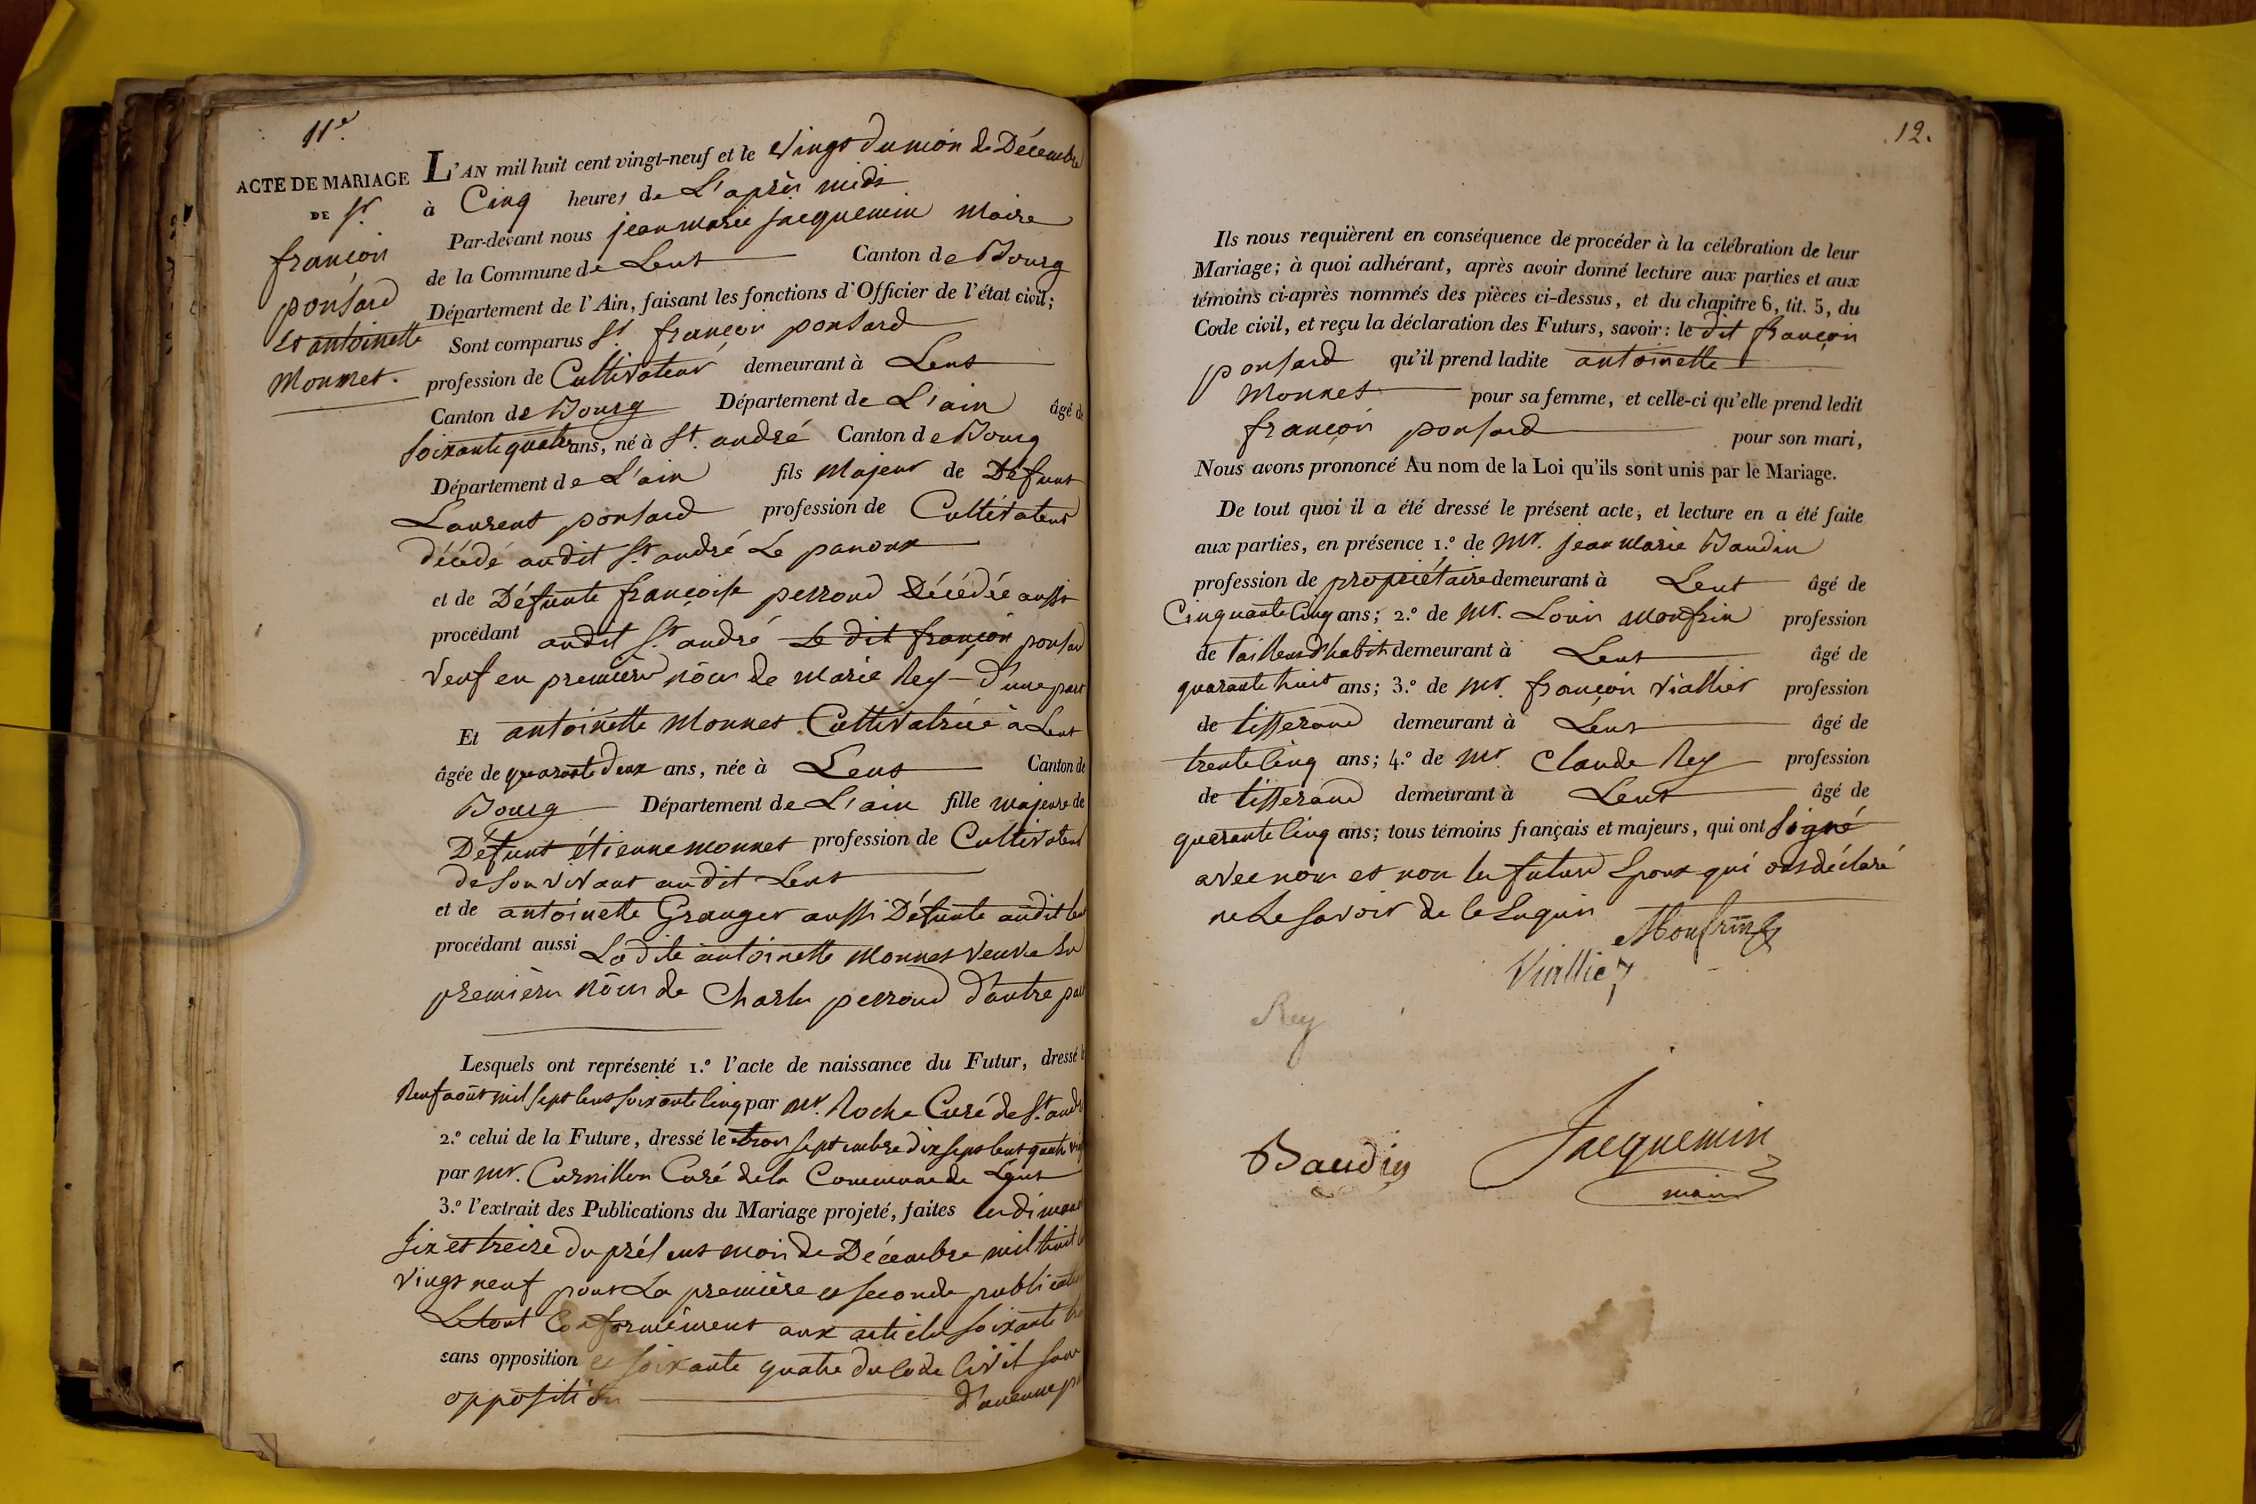 11e
ACTE DE MARIAGE
DE Sr
françois
ponsard
et antoinette
Monnet.
L'AN mil huit cent vingt-neuf et le vingt du mois de Décembre
à Cinq heures de L'après midi
Par-devant nous jean marie jacquemin Maire
de la Commune de Lent Canton de Bourg
Département de l'Ain, faisant les fonctions d'Officier de l'état civil;
Sont comparus Sr. françois ponsard
profession de Cultivateur demeurant à Lent
Canton de Bourg Département de L'ain âgé de
soixante quatre ans, né à St. andré Canton de Bourg
Département de L'ain fils Majeur de Défunt
Laurent ponsard profession de Cultivateur
décédé audit St. andré Le panoux
et de Défunte françoise perroud Décédée aussi
procédant audit St. andré Le dit françois ponsard
veuf en première nôces de marie Rey d'une part
Et antoinette Monnet Cultivatrice à Lent
âgée de quarante deux ans, née à Lent Canton de
Bourg Département de L'ain fille majeure de
Défunt étienne monnet profession de Cultivateur
de son vivant audit Lent
et de antoinette Granger aussi Défunte audit Lent
procédant aussi Ladite antoinette Monnet veuve En
premières nôces de Charles perroud d'autre part
Lesquels ont représenté 1.º l'acte de naissance du Futur, dressé le
Neuf août mil sept cent soixante cinq par Mr. Roche Curé de St. andré
2.º celui de la Future, dressé le trois septembre dix sept cent quatre vingt
par Mr. Curnillon Curé de la Commune de Lent
3.º l'extrait des Publications du Mariage projeté, faites les dimanches
six et treize du présent mois de Décembre mil huit cent
vingt neuf pour La première et seconde publication
Le tout Conformément aux articles soixante trois
sans opposition et soixante quatre du Code Civil sans
opposition d'aucune part
12.
Ils nous requièrent en conséquence de procéder à la célébration de leur
Mariage; à quoi adhérant, après avoir donné lecture aux parties et aux
témoins ci-après nommés des pièces ci-dessus, et du chapitre 6, tit. 5, du
Code civil, et reçu la déclaration des Futurs, savoir: le dit françois
ponsard qu'il prend ladite antoinette
Monnet pour sa femme, et celle-ci qu'elle prend ledit
françois ponsard pour son mari,
Nous avons prononcé Au nom de la Loi qu'ils sont unis par le Mariage.
De tout quoi il a été dressé le présent acte, et lecture en a été faite
aux parties, en présence 1.º de Mr. jean Marie Baudin
profession de propriétaire demeurant à Lent âgé de
Cinquante Cinq ans; 2.º de Mr. Louis Monfrin profession
de tailleur d'habits demeurant à Lent âgé de
quarante huit ans; 3.º de Mr. françois viallier profession
de tisserand demeurant à Lent âgé de
trente Cinq ans; 4.º de Mr. Claude Rey profession
de tisserand demeurant à Lent âgé de
quarante Cinq ans; tous témoins français et majeurs, qui ont signé
avec nous et non les futurs Epoux qui ont déclaré
ne Le savoir de ce Enquis
Monfrin
Viallier
Rey
Baudin
Jacquemin
maire